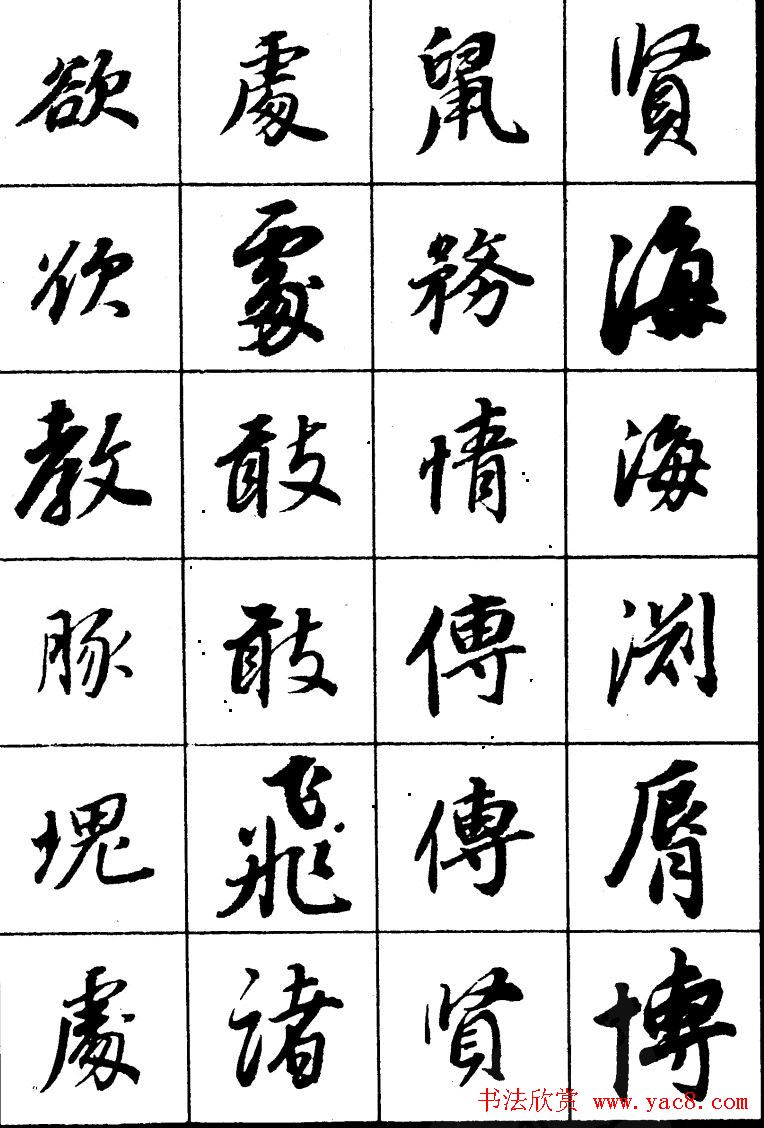 欲欲教豚塊處
處處敢敢飛諸
鼠務情傳傳贤
贤海海渊脣博
书法欣赏 www.yac8.com